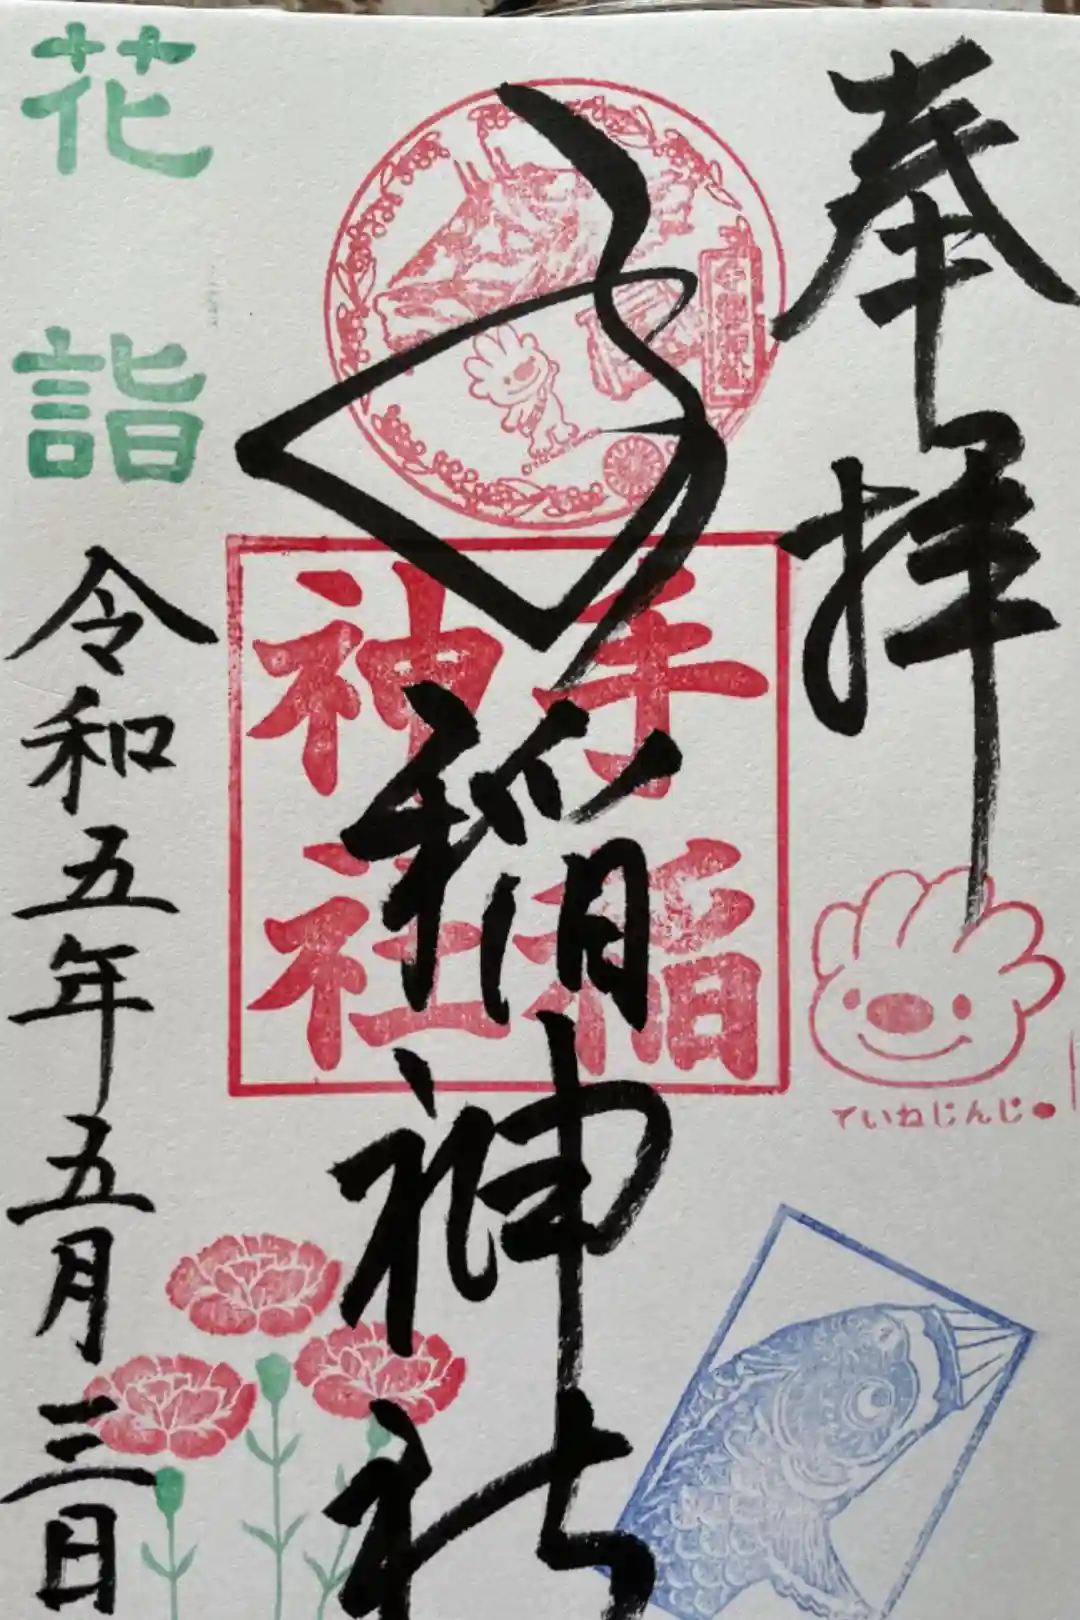 奉拝
手稲神社
手稲
神社
ていねじんじ
花詣
令和五年五月三日